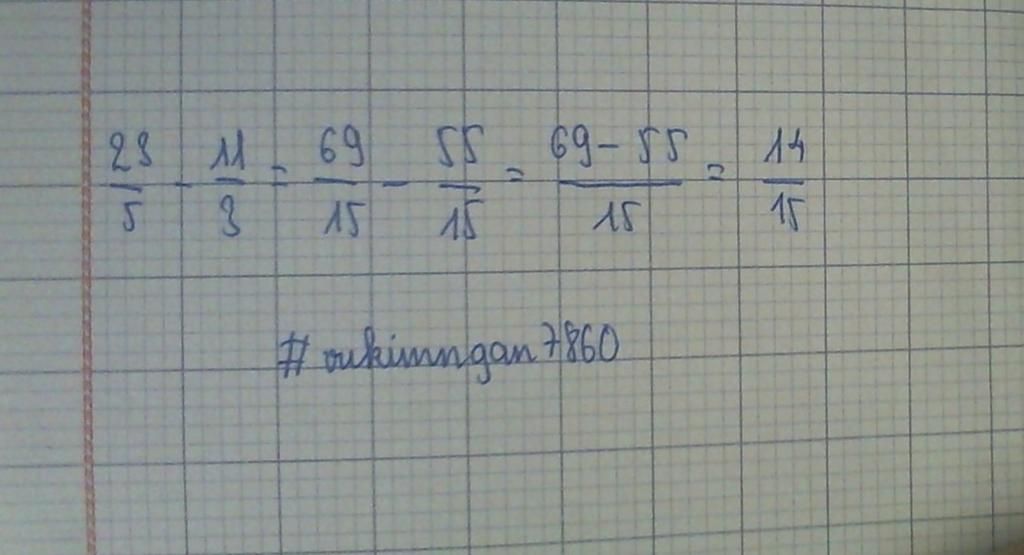 23/5 - 11/3 = 69/15 - 55/15 = 69-55/15 = 14/15
#vukimngan7860